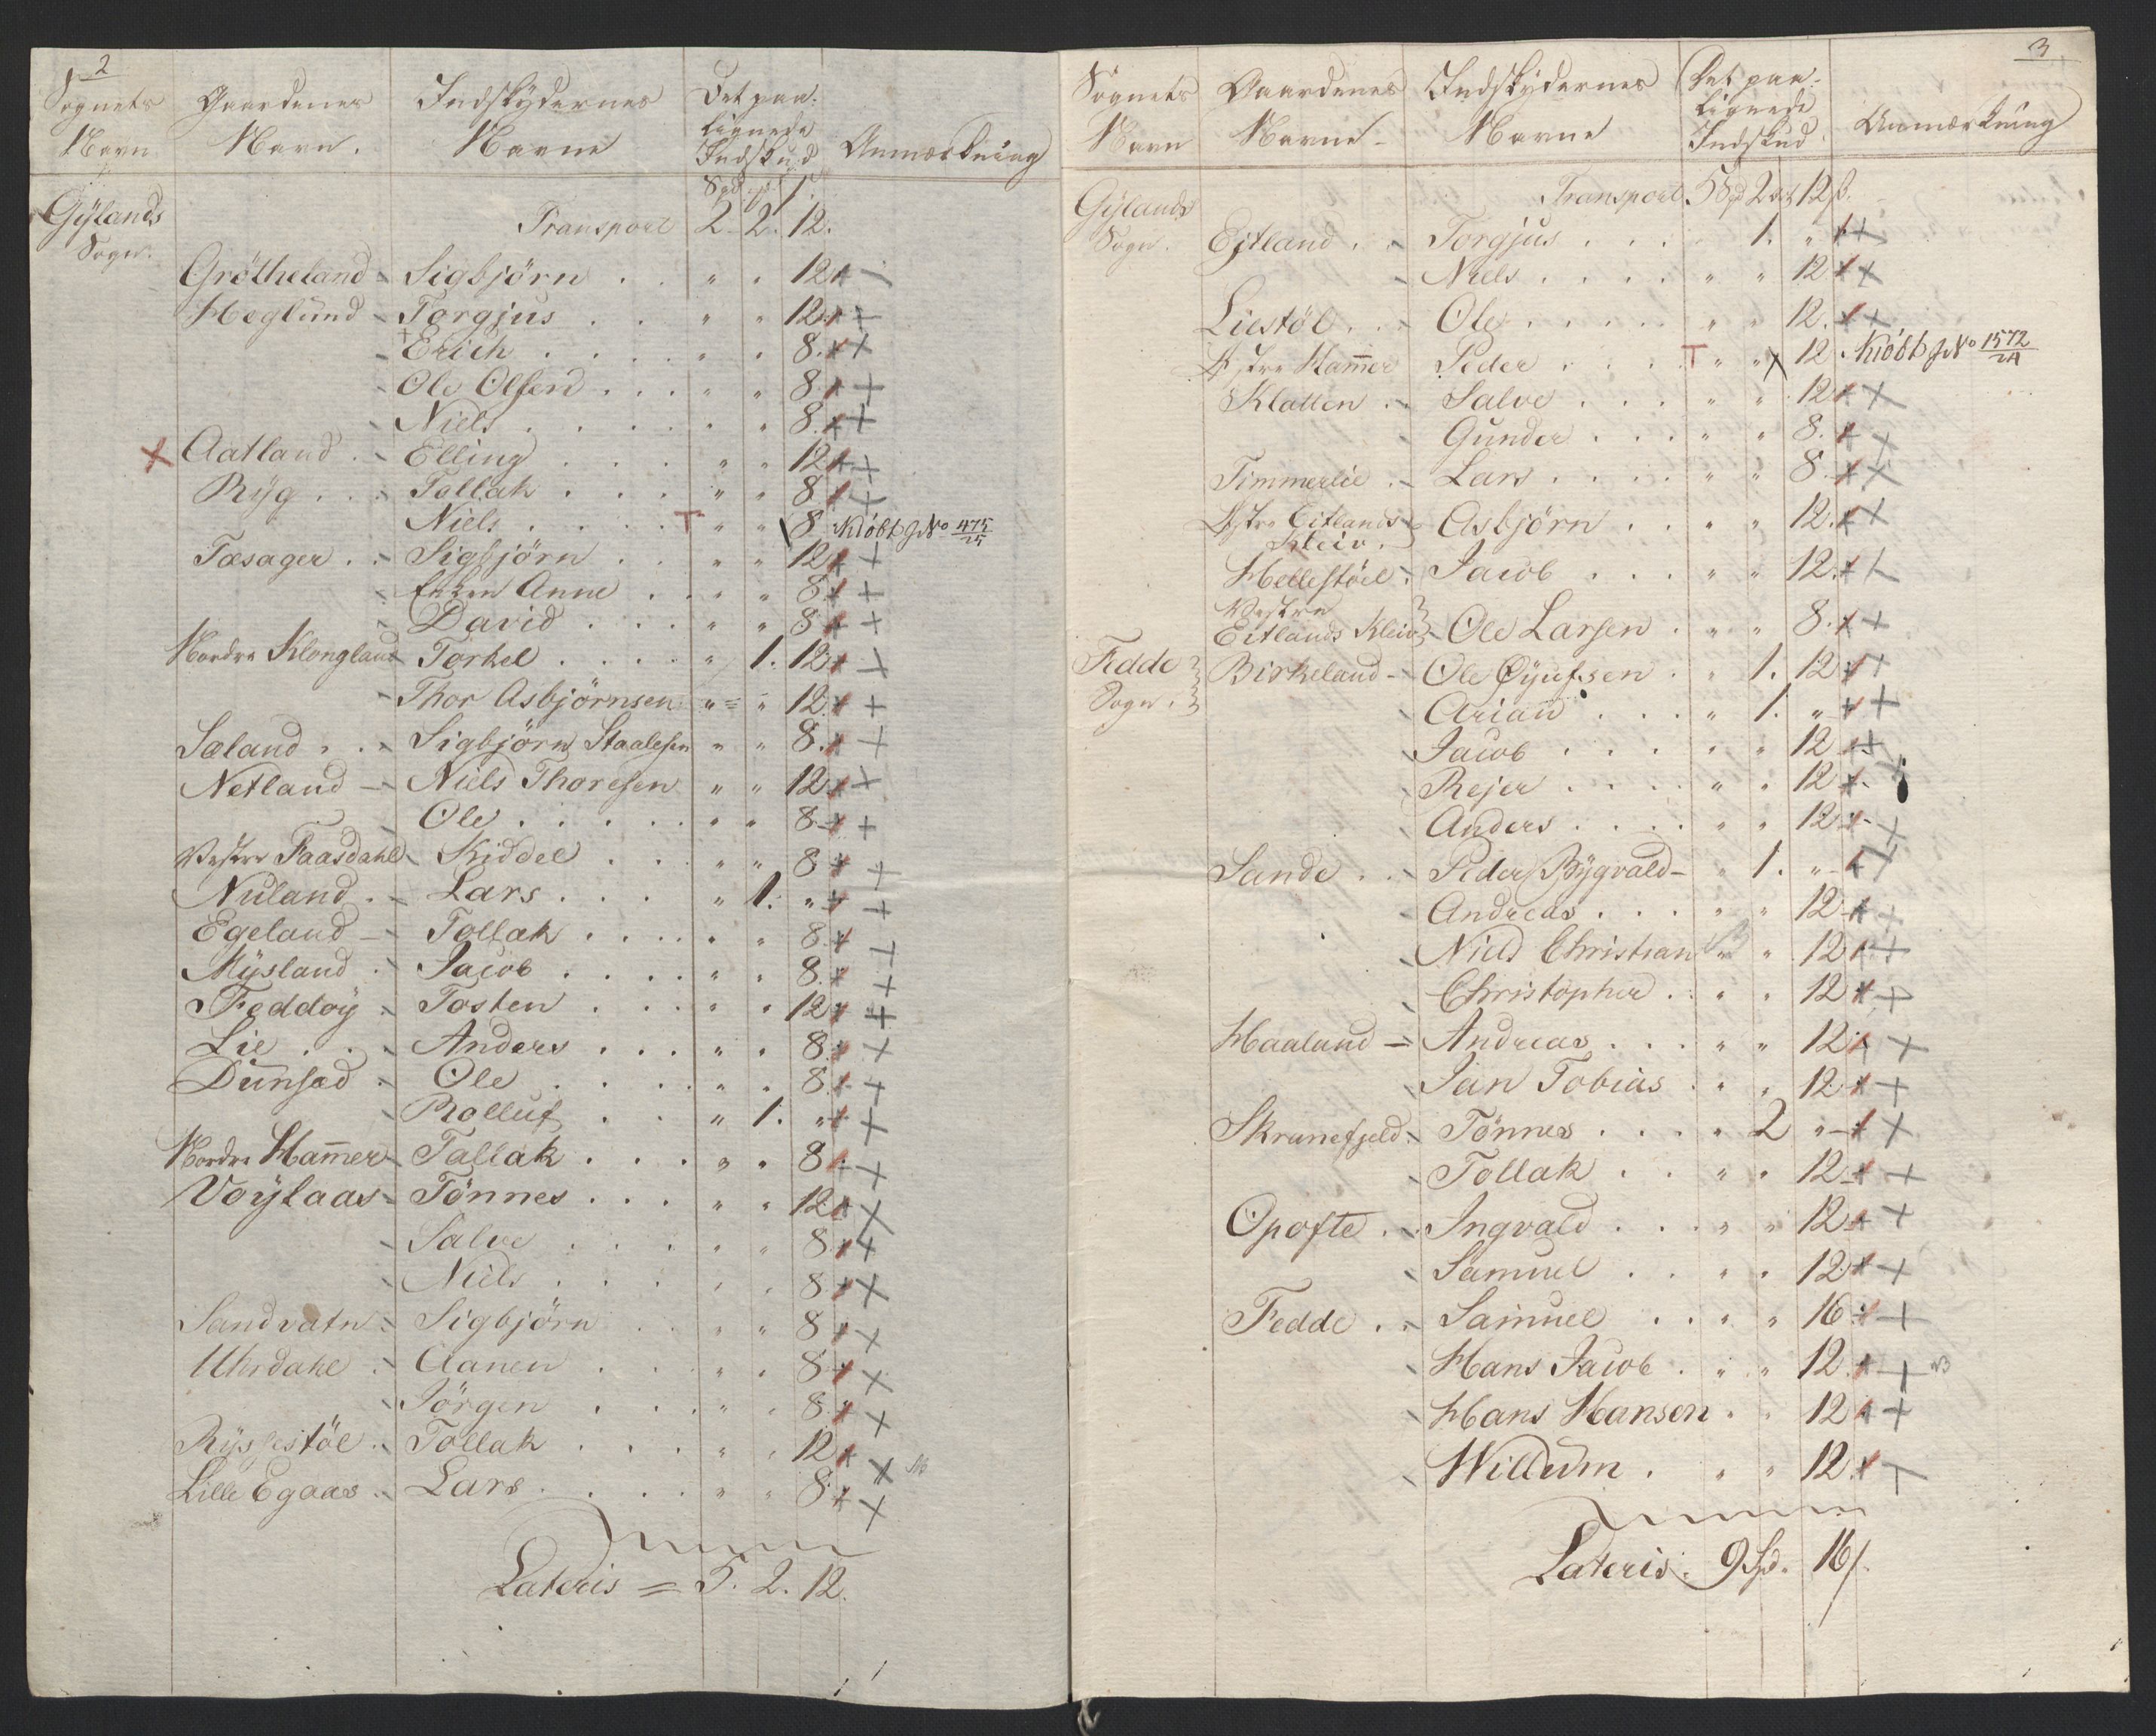 2
Sognets Navn. Gaardenes Navn. Indskydernes Navne Det paalignede Indskud Anmærkning
Gÿlands Sogn. Transport 2. 2. 12.
Grötheland - Sigbjörn . . " . 12
Heglund - Torgjus . . " " 12
- Erich . . . " . 8.
- Ole Olsen . . . " " 8
- Niels . . . . " . 8.
Aatland . - Elling . . . " " 12
Rÿg . . . Tollak . . . " " 8
Niels . . . . T " " 8 Kiöbt J No 475/25
Tæsager . . - Sigbjörn . . " " 12
- Enken Anne . . " " 8
- David . . . " " 8
Nordre Klongland - Torkel . . . . " 1. 12
- Thor Asbjörnsen " = " 12.
Sæland . . - Sigbjörn Staalesen " " 8.
Netland - Niels Thoresen " " 12
- Ole . . . . . " " 8
Vestre Faasdahl - Kiddel . . " " 8
Nuland . - Lars . . . " 1. "
Egeland - Tollak . . . . " " 8.
Mÿsland . - Jacob . . . . " . 8.
Feddoÿ . - Tosten . . . " " 12
Lie . . - Anders . . . " " 8
Dunsæd . - Ole . . . . " " 8.
- Rolluf . . " 1. "
Nordre Ham̅er - Tallak . . . " " 8
Voÿlaas - Tönnes . . . " " 12
- Salve . . . . " " 8
- Niels . . . . " " 8
Sandvatn - Sigbjörn . . " " 8
Uhrdahl . - Aanen . . . " " 8
- Jörgen . . . " " 8
Rÿssestöl . - Tollak . . . " " 12
Lille Egaas . - Lars . . . . " " 8
Lateris = 5. 2. 12.
3
Sognets Navn Gaardenes Navne - Indskydernes Navne Det paalignede Indskud Anmærkning
Gÿlands Sogn. Transport 5 Spd 2 ort 12 ß.
Eitland . - Torgjus . . . . 1. "
- Niels . . . . " " 12
Liestöl . . - Ole . . . . . " " 12.
Østre Ham̅er Peder . . . . T " " 12. Kiöbt J No 1572/24
Klatten . - Salve . . . . " " 12
- Gunder . . . " " 8.
Timmerlie . - Lars . . . . " " 8.
Østre Eitlands Kleiv. - Asbjörn . . . " " 12.
Hellestöel . - Jacob . . . " " 12.
Vestre Eitlands Kleiv - Ole Larsen . " " 8.
Fedde Sogn. Birkeland - Ole Øÿufsen . " 1. 12
- Arian . . . " 1. "
- Jacob . . . . " " 12
- Rejer . . . . " " 12
- Anders . . . . " " 12
Sande . . - Peder Bÿgvald - " 1. "
- Andreas . . . " " 12
- Niels Christian " " 12
- Christopher . . " " 12
Haaland - Andreas . . . " " 12
- Jan Tobias . " " 12.
Skranefjeld . - Tönnes . . . . " 2 "
- Tollak . . " " 12
Opofte . - Ingvald . . . " " 12
- Samuel . . " " 12
Fedde . . - Samuel . . " " 16
- Hans Jacob . " " 12.
- Hans Hansen . " " 12
- Willum . . " " 12.
Lateris: 9 Spd. 16 ß.